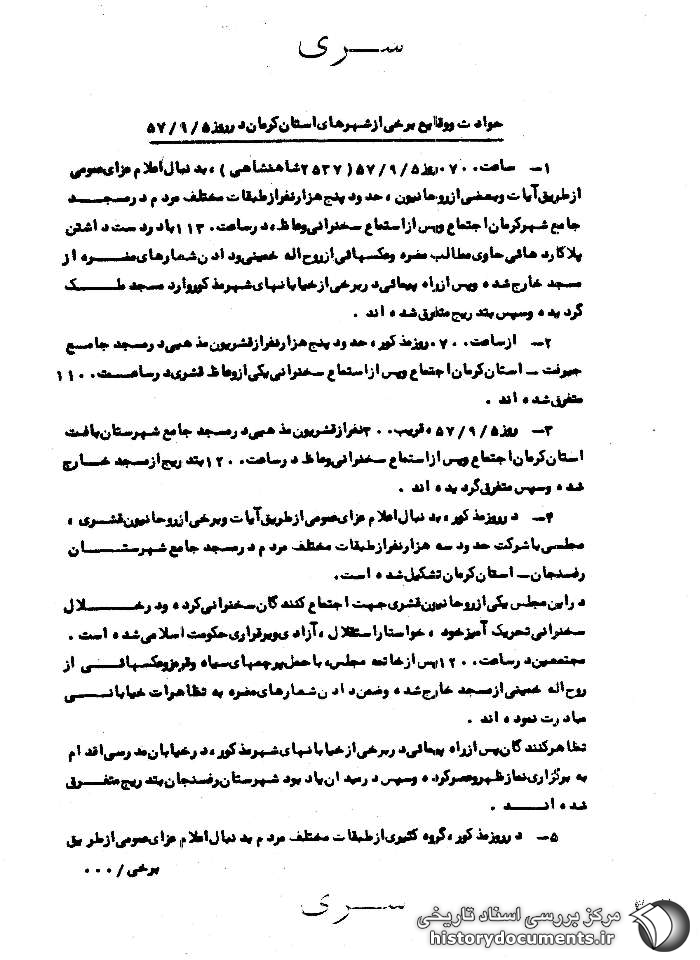 سری
حوادث ووقایع برخی ازشهرهای استان کرمان درروز ۵ / ۹ / ۵۷
۱ــ ساعت ۰۷۰۰ روز ۵ / ۹ / ۵۷ ( ۲۵۳۷ شاهنشاهی ) ، بدنبال اعلام عزای عمومی
ازطریق آیات وبعضی ازروحانیون ، حدود پنج هزارنفرازطبقات مختلف مردم درمسجــد
جامع شهرکرمان اجتماع وپس ازاستماع سخنرانی وعاظ ، درساعت ۱۱۳۰ بادردست داشتن
پلاکارد هائی حاوی مطالب مضره وعکسهائی ازروح اله خمینی ودادن شعارهای مضــره از
مسجد خارج شده وپس ازراه پیمائی دربرخی ازخیابانهای شهرمذکوروارد مسجد ملــک
گردیده وسپس بتدریج متفرق شده اند .
۲ــ ازساعت ۰۷۰۰ روزمذکور، حدود پنج هزارنفرازقشریون مذهبی درمسجد جامــع
جیرفت ــ استان کرمان اجتماع وپس ازاستماع سخنرانی یکی ازوعاظ قشری درساعــت ۱۱۰۰
متفرق شده اند .
۳ــ روز ۵ / ۹ / ۵۷ ، قریب ۲۰۰ نفرازقشریون مذهبی درمسجد جامع شهرستان بافت
استان کرمان اجتماع وپس ازاستماع سخنرانی وعاظ درساعت ۱۲۰۰ بتدریج ازمسجد خــارج
شده وسپس متفرق گردیده اند .
۴ــ درروزمذکور، بدنبال اعلام عزای عمومی ازطریق آیات وبرخی ازروحانیون قشری ،
مجلسی باشرکت حدود سه هزارنفرازطبقات مختلف مردم درمسجد جامع شهرستــان
رفسنجان ــ استان کرمان تشکیل شده است .
دراین مجلس یکی ازروحانیون قشری جهت اجتماع کنندگان سخنرانی کرده ودرخــلال
سخنرانی تحریک آمیزخود ، خواستاراستقلال ، آزادی وبرقراری حکومت اسلامی شده است .
مجتمعین درساعت ۱۲۰۰ پس ازخاتمه مجلس ، باحمل پرچمهای سیاه وقرمزوعکسهائــی از
روح اله خمینی ازمسجد خارج شده وضمن دادن شعارهای مضره به تظاهرات خیابانــی
مبادرت نموده اند .
تظاهرکنندگان پس ازراه پیمائی دربرخی ازخیابانهای شهرمذکور، درخیابان مدرسی اقدام
به برگزاری نمازظهروعصرکرده وسپس درمیدان یادبود شهرستان رفسنجان بتدریج متفــرق
شده انــد .
۵ــ درروزمذکور، گروه کثیری ازطبقات مختلف مردم بدنبال اعلام عزای عمومی ازطریق
برخی / ۰۰۰
سری
مرکز بررسی اسناد تاریخی
historydocuments.ir